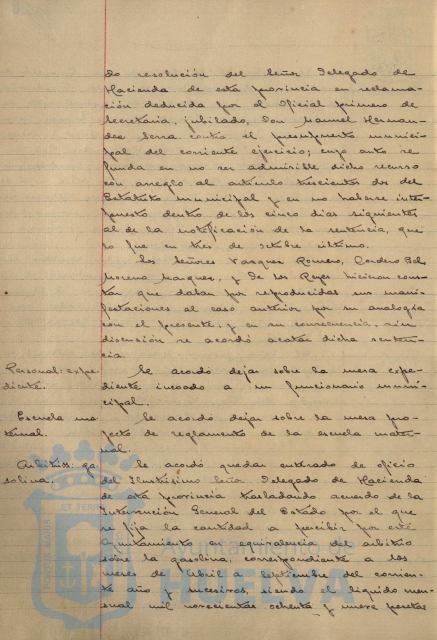 do resolución del Señor Delegado de
Hacienda de esta provincia en reclama-
ción deducida por el Oficial primero de
Secretaria, jubilado, Don Manuel Hernan-
dez Serra contra el presupuesto munici-
pal del corriente ejercicio; cuyo auto se
funda en no ser admisible dicho recurso
con arreglo al articulo trescientos dos del
Estatuto municipal y en no haberse inter-
puesto dentro de los cinco dias siguientes
al de la notificación de la sentencia, que
lo fue en tres de Octubre último.
Los Señores Vazquez Romero, Cordero Bel,
Moreno Marquez, y de los Reyes hicieron cons-
tar que daban por reproducidas sus mani-
festaciones al caso anterior por su analogia
con el presente, y en su consecuencia, sin
discusión se acordó acatar dicha senten-
cia.
Personal: expe-
diente.
Se acordó dejar sobre la mesa expe-
diente incoado a un funcionario muni-
cipal.
Escuela ma-
ternal.
Se acordó dejar sobre la mesa pro-
yecto de reglamento de la escuela mater-
nal.
Arbitrios: ga-
solina.
Se acordó quedar enterado de oficio
del Ilustrísimo Señor Delegado de Hacienda
de esta provincia trasladando acuerdo de la
Intervención General del Estado por el que
se fija la cantidad a percibir por este
Ayuntamiento en equivalencia del arbitrio
sobre la gasolina, correspondiente a los
meses de Abril a Septiembre del corrien-
te año y sucesivos, siendo el liquido men-
sual mil novecientas ochenta y nueve pesetas
Ayuntamiento de
HUELVA